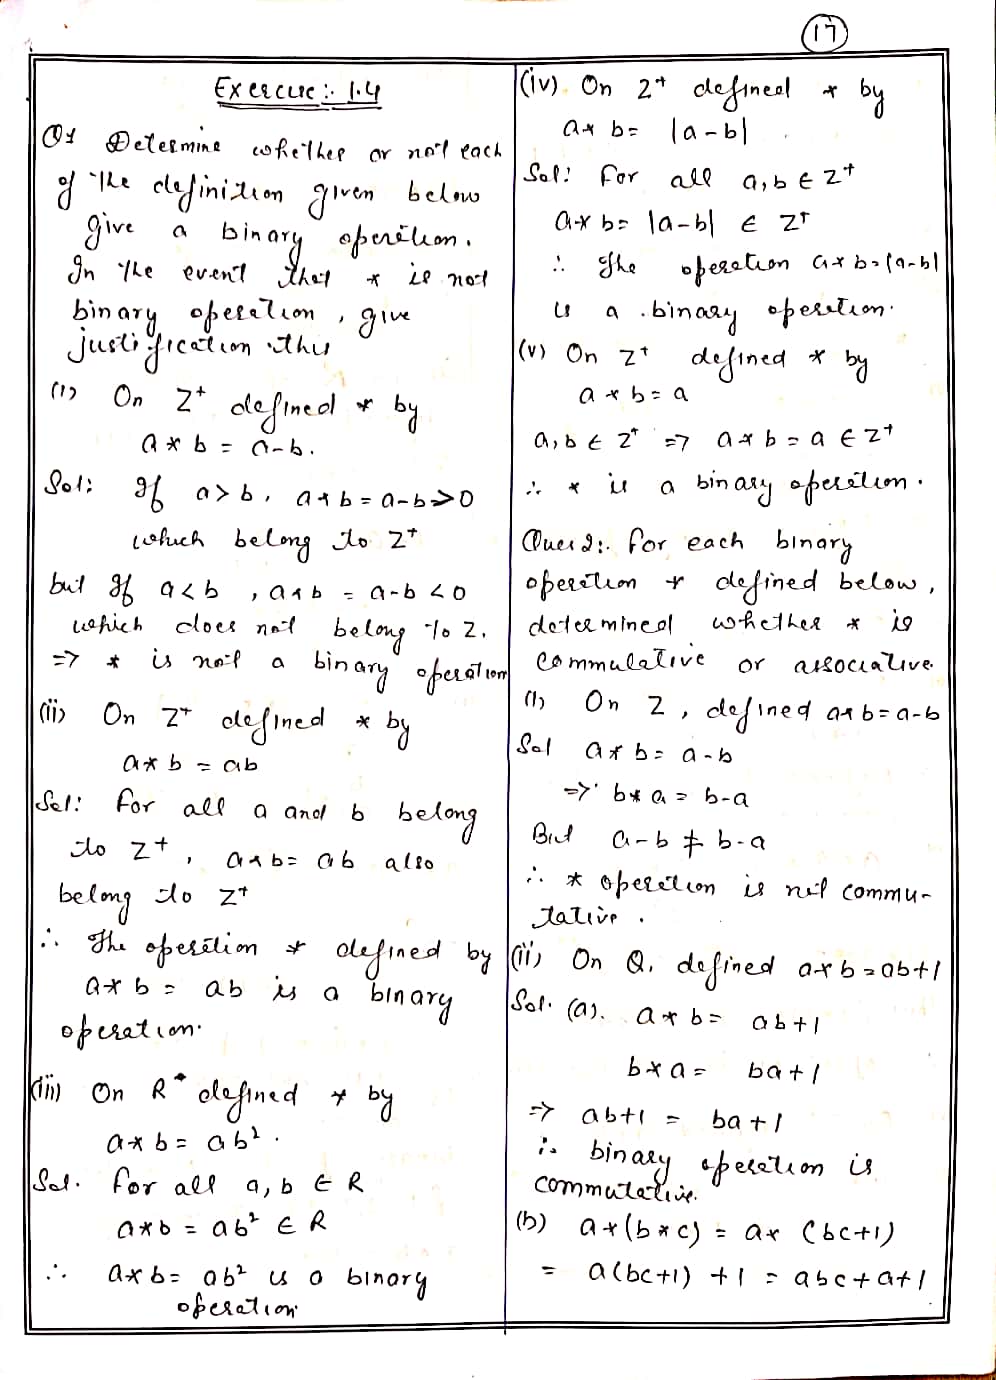 17
Exercise :- 1.4
Q1 Determine whether or not each
of the definition given below
give a binary operation.
In the event that * is not
binary operation, give
justification this
(i) On Z⁺ defined * by
a * b = a-b.
Sol: If a>b, a*b = a-b>0
which belong to Z⁺
but If a<b, a*b = a-b <0
which does not belong to Z.
=> * is not a binary operation
(ii) On Z⁺ defined * by
a*b = ab
Sol: For all a and b belong
to Z⁺, a*b= ab also
belong to Z⁺
∴ The operation * defined by
a*b = ab is a binary
operation.
(iii) On R* defined * by
a*b = ab².
Sol. For all a, b ∈ R
a*b = ab² ∈ R
∴ a*b= ab² is a binary
operation
(iv). On Z⁺ defined * by
a*b= |a-b|
Sol: For all a,b ∈ Z⁺
a*b= |a-b| ∈ Z⁺
∴ The operation a*b=|a-b|
is a binary operation.
(v) On Z⁺ defined * by
a*b=a
a,b ∈ Z⁺ => a*b=a ∈ Z⁺
∴ * is a binary operation.
Ques 2:. For each binary
operation * defined below,
determined whether * is
commulative or associative.
(i) On Z, defined a*b=a-b
Sol a*b= a-b
=> b*a= b-a
But a-b ≠ b-a
∴ * operation is not commu-
tative.
(ii) On Q, defined a*b=ab+1
Sol. (a). a*b= ab+1
b*a= ba+1
=> ab+1 = ba+1
∴ binary operation is
commutative.
(b) a*(b*c) = a* (bc+1)
= a(bc+1) +1 = abc+a+1